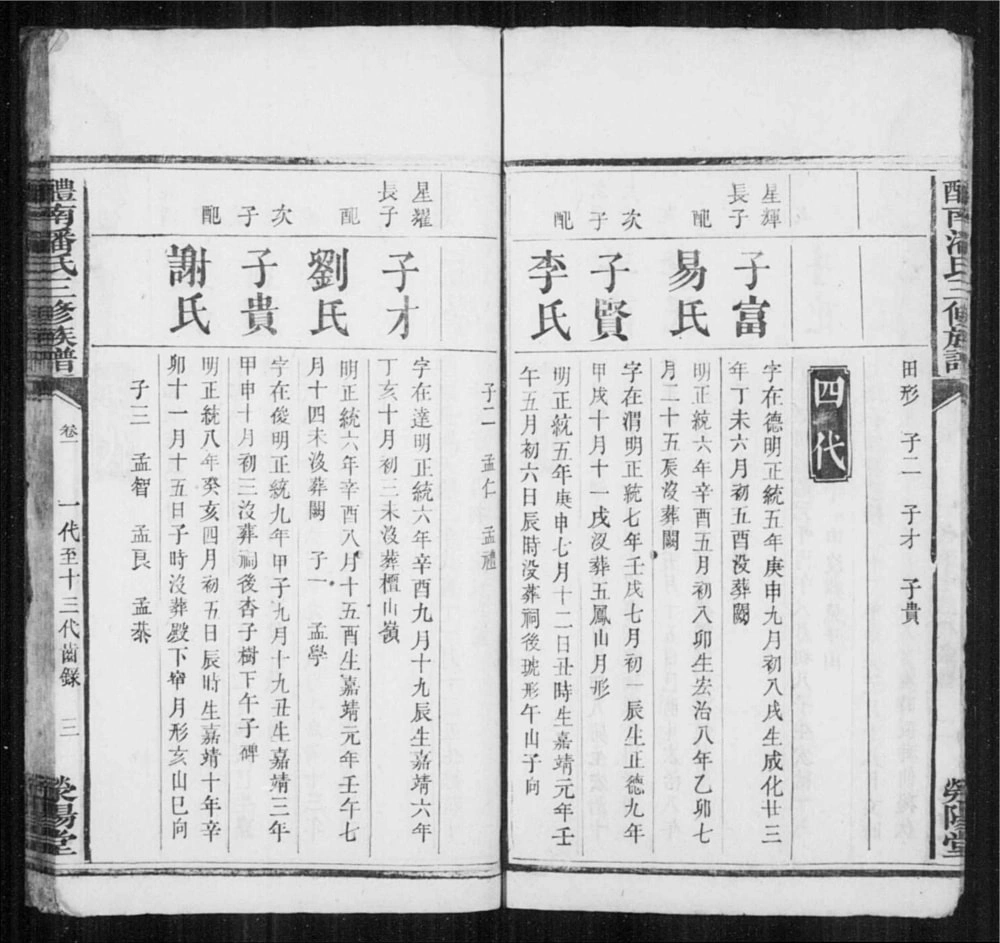 醴南潘氏三修族譜
滎陽堂
田形 子二 子才 子貴
四代
星輝長子
子富
字在德明正統五年庚申九月初八戌生成化廿三
年丁未六月初五酉沒葬闕
配
易氏
明正統六年辛酉五月初八卯生宏治八年乙卯七
月二十五辰沒葬闕
次子
子賢
字在渭明正統七年壬戌七月初一辰生正德九年
甲戌十月十一戌沒葬五鳳山月形
配
李氏
明正統五年庚申七月十二日丑時生嘉靖元年壬
午五月初六日辰時沒葬祠後琥形午山子向
子二 孟仁 孟禮
星耀長子
子才
字在達明正統六年辛酉九月十九辰生嘉靖六年
丁亥十月初三未沒葬檀山嶺
配
劉氏
明正統六年辛酉八月十五酉生嘉靖元年壬午七
月十四未沒葬闕 子一 孟學
次子
子貴
字在俊明正統九年甲子九月十九丑生嘉靖三年
甲申十月初三沒葬祠後杏子樹下午子碑
配
謝氏
明正統八年癸亥四月初五日辰時生嘉靖十年辛
卯十一月十五日子時沒葬毀下窜月形亥山巳向
子三 孟智 孟良 孟恭
醴南潘氏三修族譜
卷一
一代至十三代齒錄
三
滎陽堂